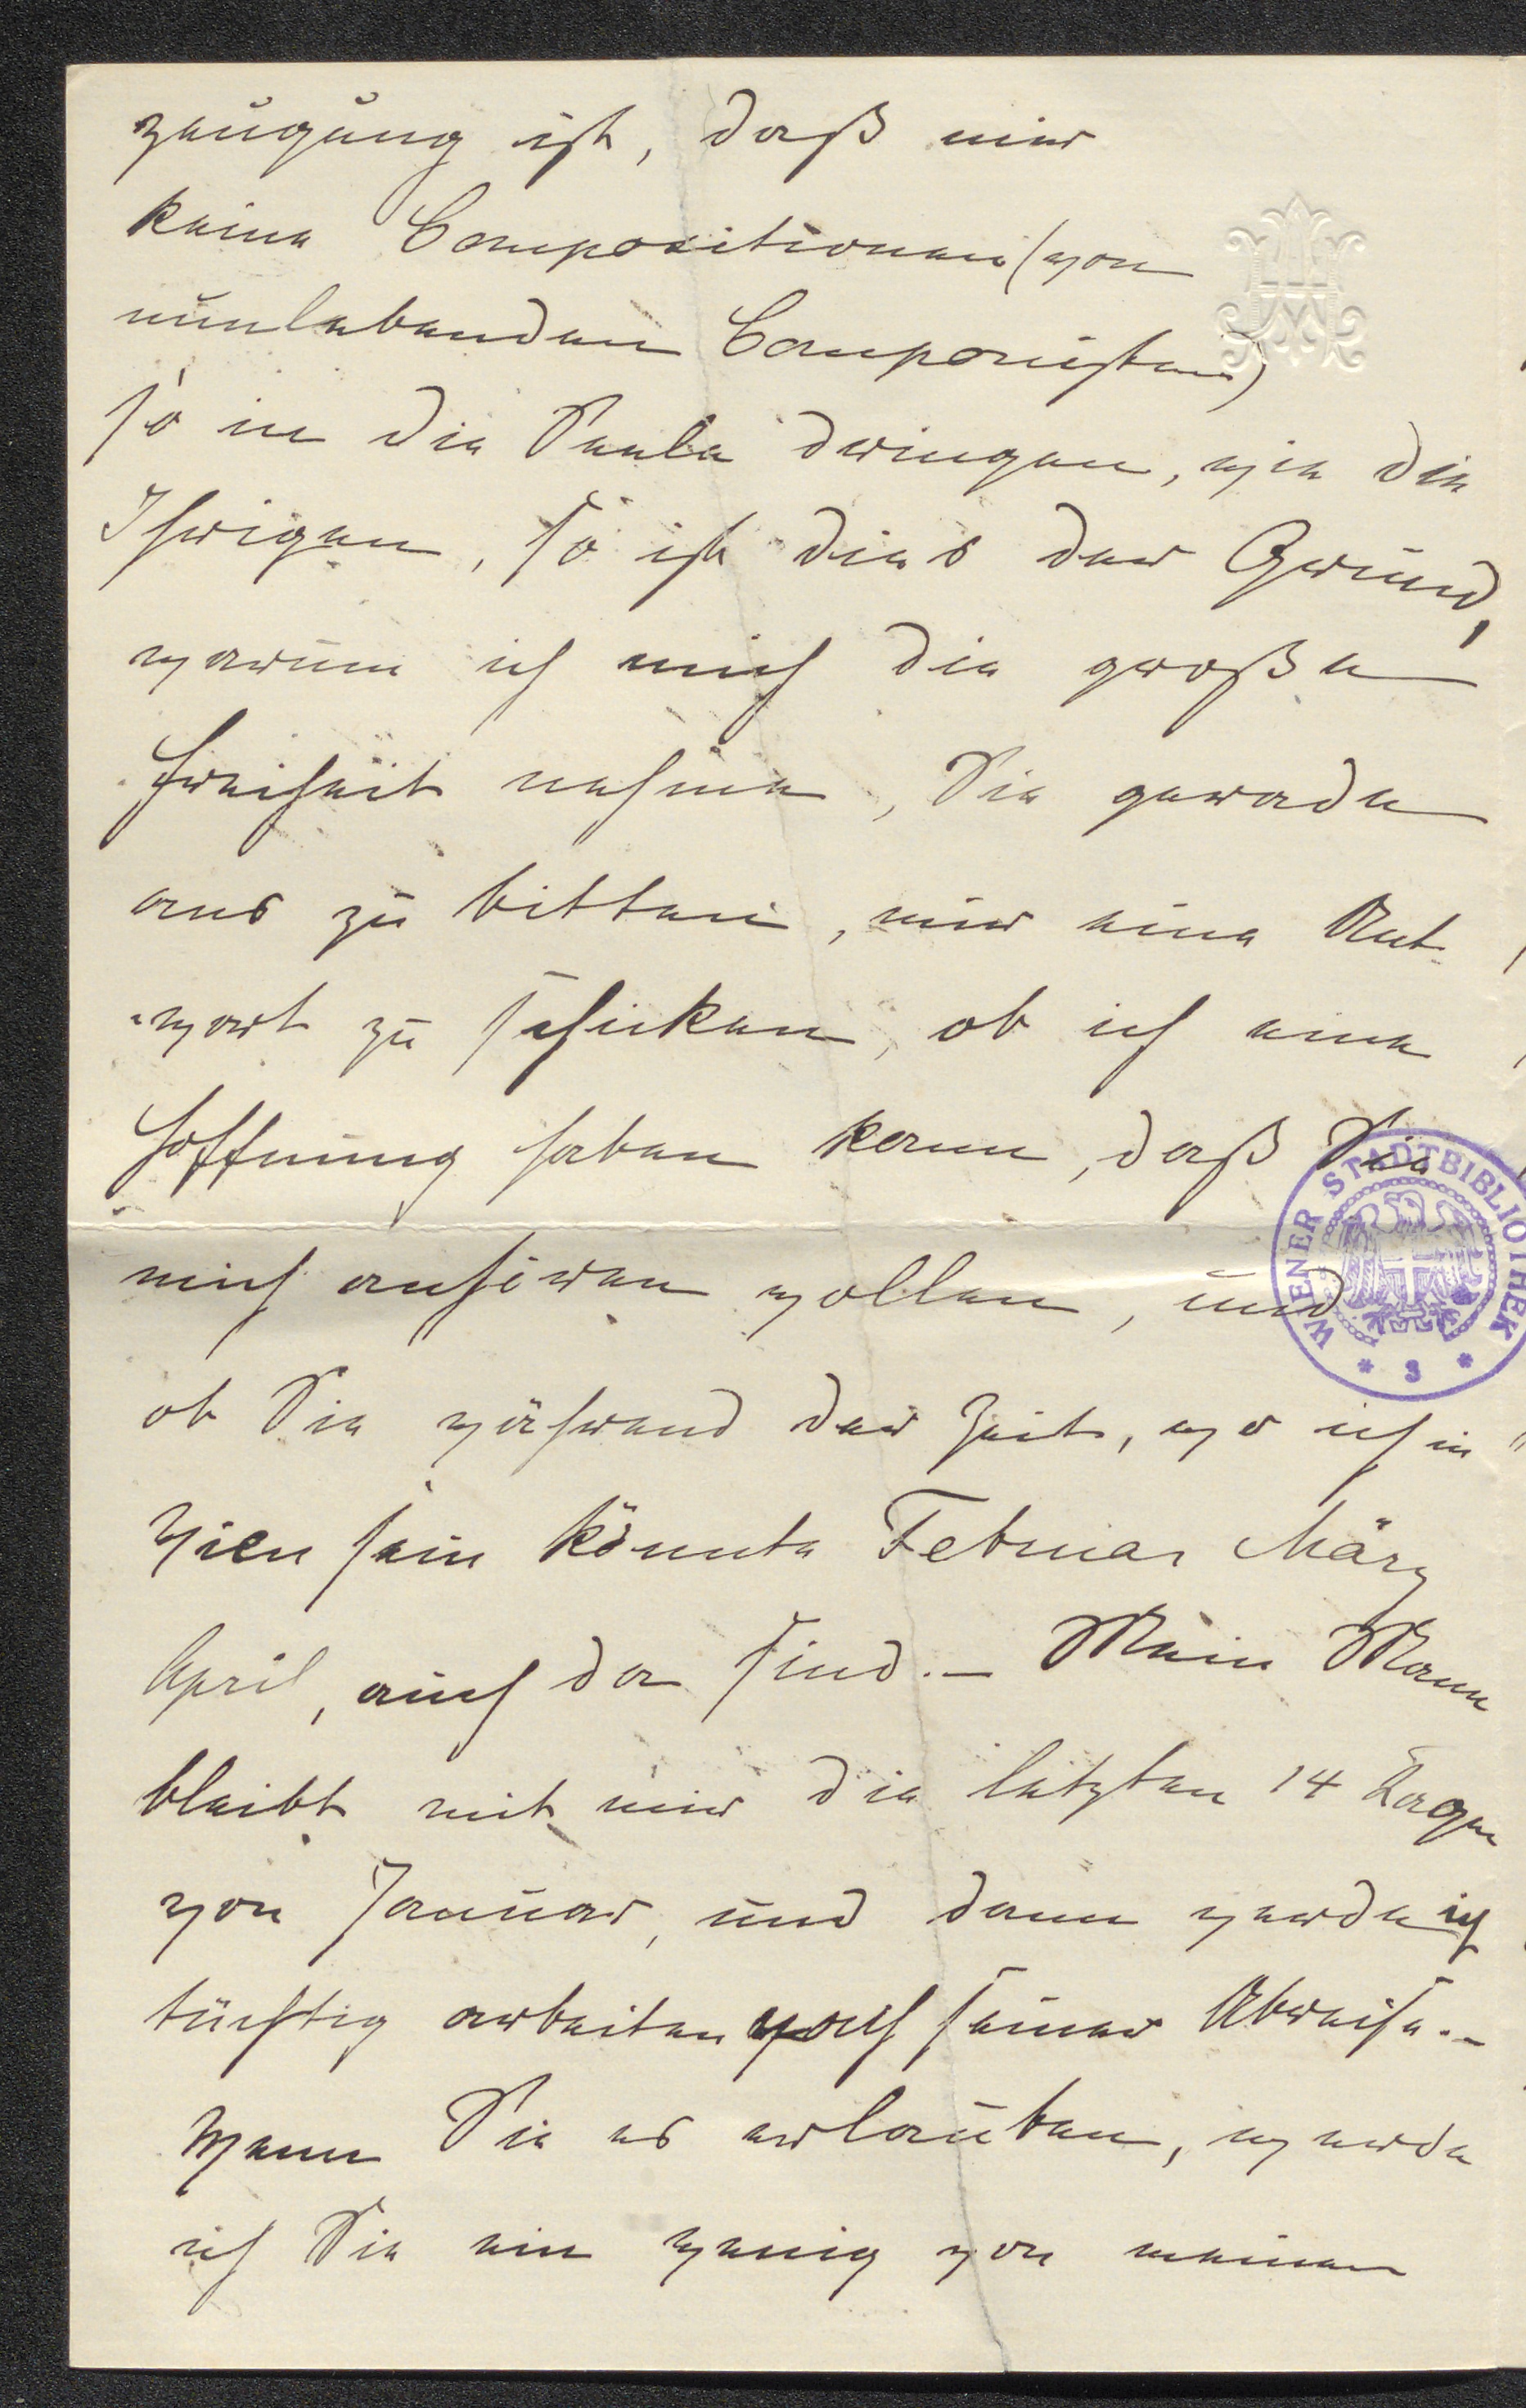 zeugung ist, daß mir
keine Compositionen (von
nunlebenden Componisten)
so in die Seele dringen, wie die
Ihrigen, so ist dies der Grund,
warum ich mich die große
Freiheit nehme, Sie gerade
aus zu bitten, mir eine Ant-
-wort zu schicken, ob ich eine
Hoffnung haben kann, daß Sie
mich anhören wollen, und
ob Sie während der Zeit, wo ich in
Wien sein könnte Februar März
April, auch da sind. – Mein Mann
bleibt mit mir die letzten 14 Tagen
von Januar, und dann werde ich
tüchtig arbeiten nach seiner Abreise. –
Wenn Sie es erlauben, werde
ich Sie ein wenig von meinen
WIENER STADTBIBLIOTHEK
* 3 *